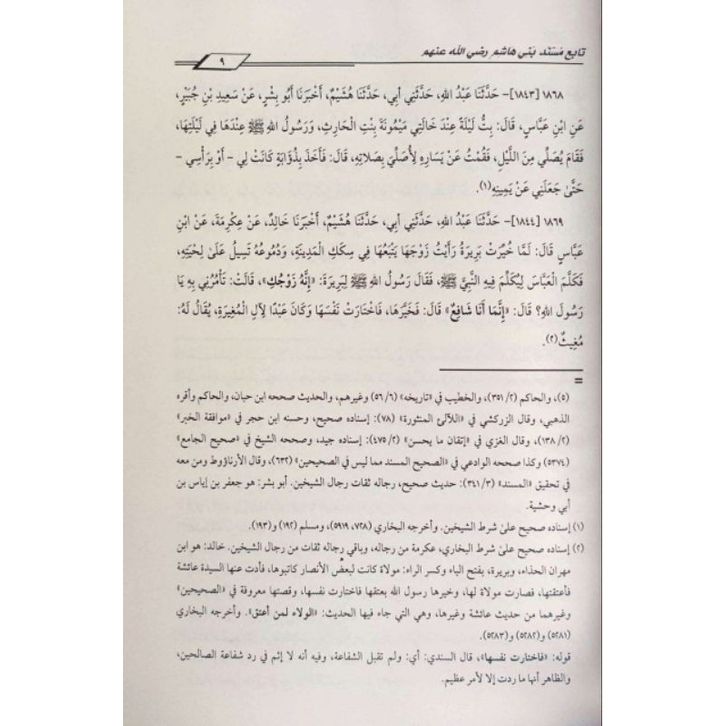 تابع مسند بني هاشم رضي الله عنهم
٩
١٨٦٨ [١٨٤٣]- حَدَّثَنَا عَبْدُ اللهِ، حَدَّثَنِي أَبِي، حَدَّثَنَا هُشَيْمٌ، أَخْبَرَنَا أَبُو بِشْرٍ، عَنْ سَعِيدِ بْنِ جُبَيْرٍ،
عَنِ ابْنِ عَبَّاسٍ، قَالَ: بِتُّ لَيْلَةً عِنْدَ خَالَتِي مَيْمُونَةَ بِنْتِ الْحَارِثِ، وَرَسُولُ اللهِ ﷺ عِنْدَهَا فِي لَيْلَتِهَا،
فَقَامَ يُصَلِّي مِنَ اللَّيْلِ، فَقُمْتُ عَنْ يَسَارِهِ لِأُصَلِّيَ بِصَلَاتِهِ، قَالَ: فَأَخَذَ بِذُؤَابَةٍ كَانَتْ لِي - أَوْ بِرَأْسِي -
حَتَّىٰ جَعَلَنِي عَنْ يَمِينِهِ(١).
١٨٦٩ [١٨٤٤]- حَدَّثَنَا عَبْدُ اللهِ، حَدَّثَنِي أَبِي، حَدَّثَنَا هُشَيْمٌ، أَخْبَرَنَا خَالِدٌ، عَنْ عِكْرِمَةَ، عَنِ ابْنِ
عَبَّاسٍ قَالَ: لَمَّا خُيِّرَتْ بَرِيرَةُ رَأَيْتُ زَوْجَهَا يَتْبَعُهَا فِي سِكَكِ الْمَدِينَةِ، وَدُمُوعُهُ تَسِيلُ عَلَىٰ لِحْيَتِهِ،
فَكَلَّمَ الْعَبَّاسَ لِيُكَلِّمَ فِيهِ النَّبِيَّ ﷺ، فَقَالَ رَسُولُ اللهِ ﷺ لِبَرِيرَةَ: «إِنَّهُ زَوْجُكِ»، قَالَتْ: تَأْمُرُنِي بِهِ يَا
رَسُولَ اللهِ؟ قَالَ: «إِنَّمَا أَنَا شَافِعٌ» قَالَ: فَخَيَّرَهَا، فَاخْتَارَتْ نَفْسَهَا وَكَانَ عَبْدًا لِآلِ الْمُغِيرَةِ، يُقَالُ لَهُ:
مُغِيثٌ(٢).
=
(٥)، والحاكم (٢/ ٣٥١)، والخطيب في «تاريخه» (٦/ ٥٦) وغيرهم، والحديث صححه ابن حبان، والحاكم وأقره
الذهبي، وقال الزركشي في «اللآلئ المنثورة» (٧٨): إسناده صحيح، وحسنه ابن حجر في «موافقة الخبر»
(٢/ ١٣٨)، وقال الغزي في «إتقان ما يحسن» (٢/ ٤٧٥): إسناده جيد، وصححه الشيخ في «صحيح الجامع»
(٥٣٧٤) وكذا صححه الوادعي في «الصحيح المسند مما ليس في الصحيحين» (٦٣٢)، وقال الأرناؤوط ومن معه
في تحقيق «المسند» (٣/ ٣٤١): حديث صحيح، رجاله ثقات رجال الشيخين. أبو بشر: هو جعفر بن إياس بن
أبي وحشية.
(١) إسناده صحيح علىٰ شرط الشيخين. وأخرجه البخاري (٧٢٨، ٥٩١٩)، ومسلم (١٩٢) و(١٩٣).
(٢) إسناده صحيح علىٰ شرط البخاري، عكرمة من رجاله، وباقي رجاله ثقات من رجال الشيخين. خالد: هو ابن
مهران الحذاء، وبريرة، بفتح الباء وكسر الراء: مولاة كانت لبعض الأنصار كاتبوها، فأدت عنها السيدة عائشة
فأعتقتها، فصارت مولاة لها، وخيرها رسول الله بعتقها فاختارت نفسها، وقصتها معروفة في «الصحيحين»
وغيرهما من حديث عائشة وغيرها، وهي التي جاء فيها الحديث: «الولاء لمن أعتق». وأخرجه البخاري
(٥٢٨١) و(٥٢٨٢) و(٥٢٨٣).
قوله: «فاختارت نفسها»، قال السندي: أي: ولم تقبل الشفاعة، وفيه أنه لا إثم في رد شفاعة الصالحين،
والظاهر أنها ما ردت إلا لأمر عظيم.